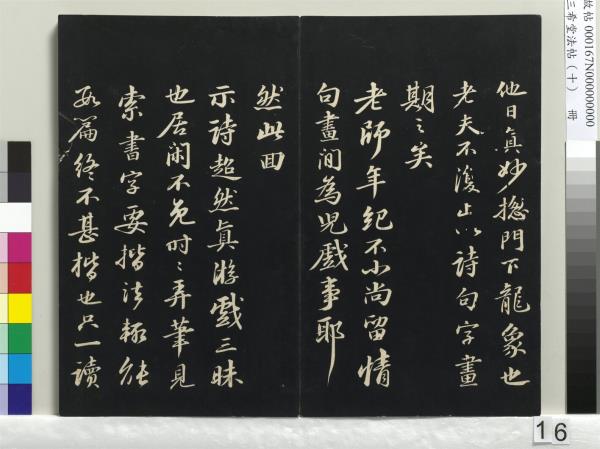 他日眞妙揔門下龍象也
老夫不復止以詩句字畫
期之矣
老師年紀不小尚留情
句畫間為兒戲事耶
然此回
示詩超然眞游戲三昧
也居閑不免時〻弄筆見
索書字要楷法輒往
數篇終不甚楷也只一讀
故帖 000167N000000000
三希堂法帖（十） 冊
16